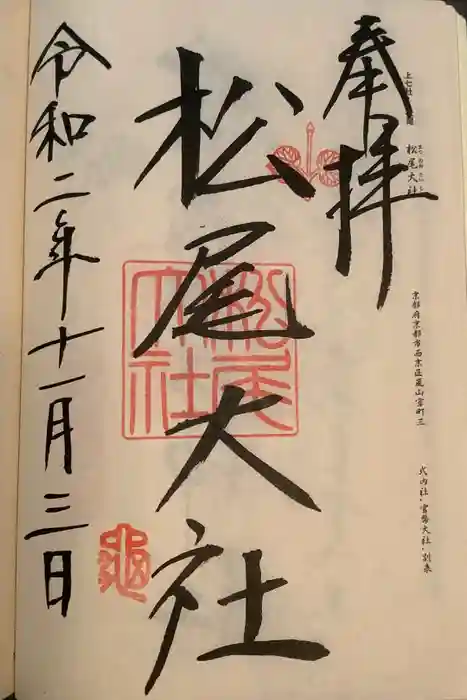 奉拝
上七社
松尾大社
まつのおたいしゃ
京都府京都市西京区嵐山宮町三
式内社・官幣大社・別表
松尾大社
松尾大社
令和二年十一月三日